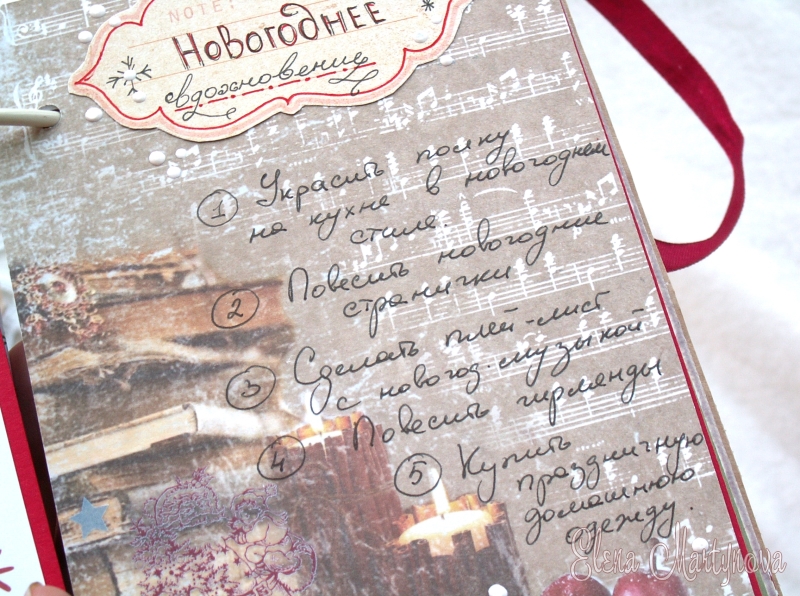 NOTE:
Новогоднее
вдохновение
1 Украсить полку
на кухне в новогоднем
стиле.
2 Повесить новогодние
странички
3 Сделать плей-лист
с новогод. музыкой
4 Повесить гирлянды
5 Купить
праздничную
домашнюю
одежду.
Elena Martynova